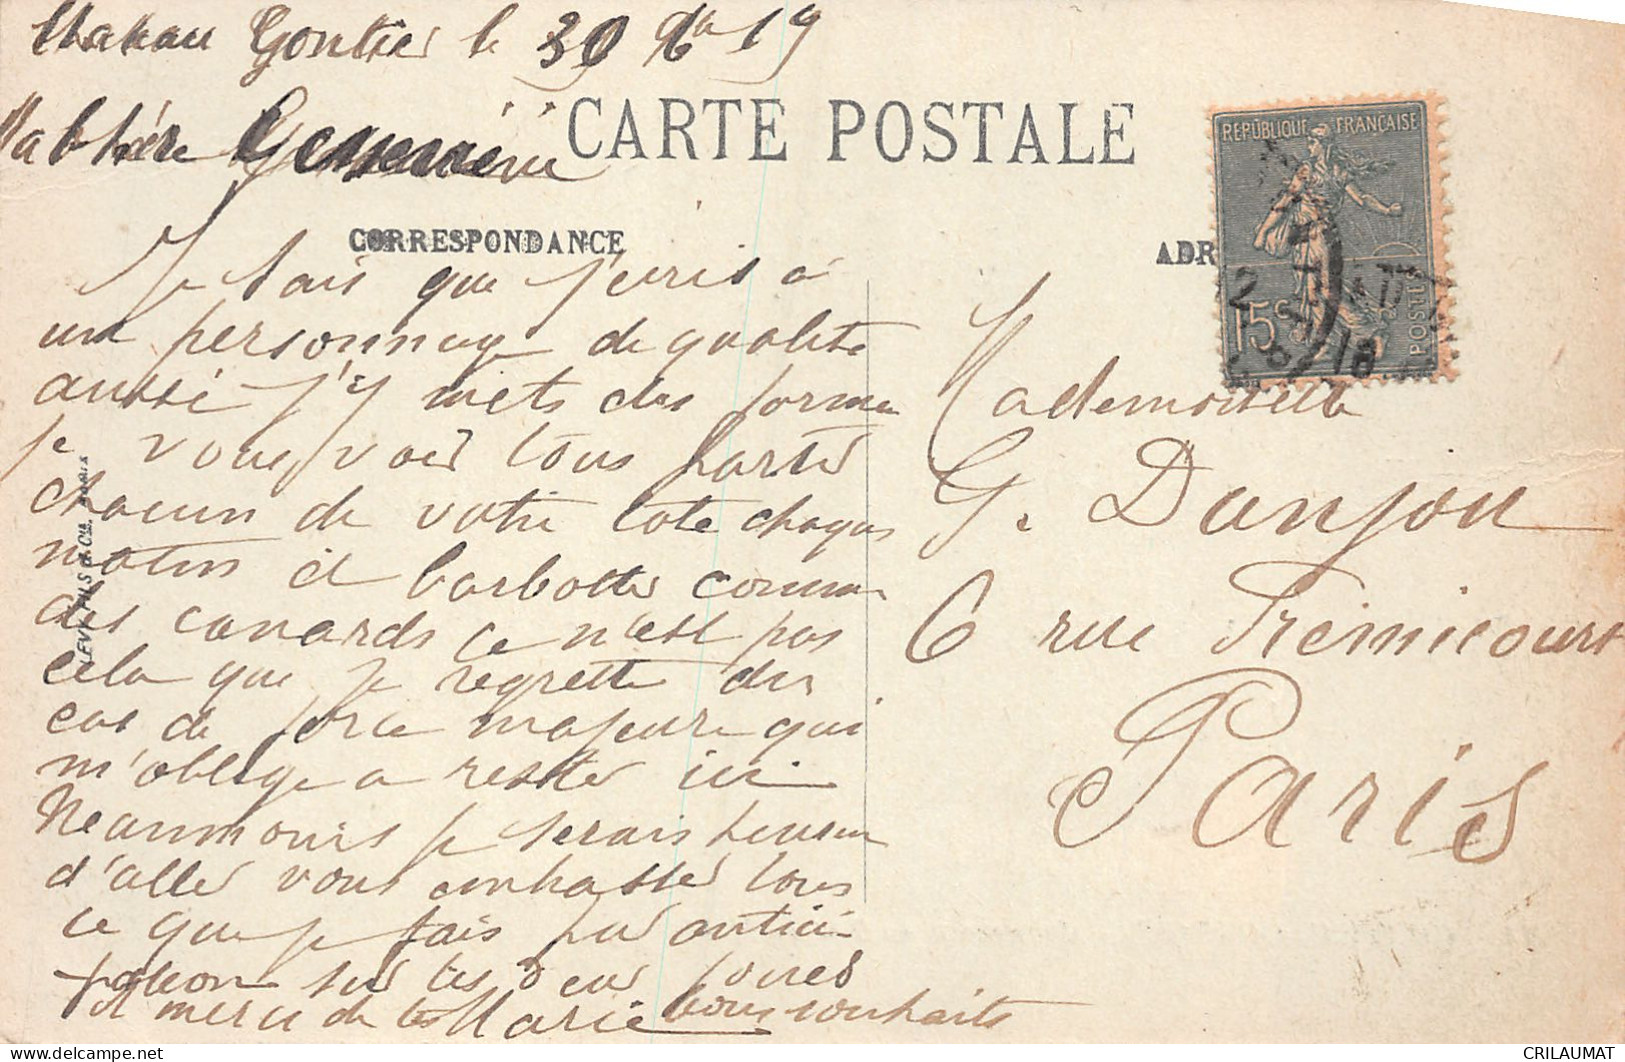 Chateau Gontier le 30 Xbre 19
Ma chère Germaine
CARTE POSTALE
CORRESPONDANCE
ADR
RÉPUBLIQUE FRANÇAISE
15c
POSTES
LEVY FILS & Cie. PARIS
Je sais que j'écris à
une personnage de qualité
aussi j'y mets des formes
je vous vois tous partir
chacun de votre coté chaque
matin et barbotter comme
des canards ce n'est pas
cela que je regrette des
cas de force majeure qui
m'oblige a rester ici
Neanmoins je serais heureux
d'aller vous embrasser tous
ce que je fais par antici-
pation sur tes deux joues
et merci de tes bons souhaits
Marie
Mademoiselle
G. Danjou
6 rue Fremicourt
Paris
CRILAUMAT